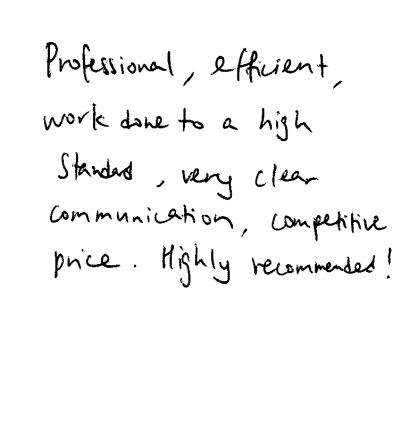 Professional, efficient,
work done to a high
Standard, very clear
communication, competitive
price. Highly recommended!